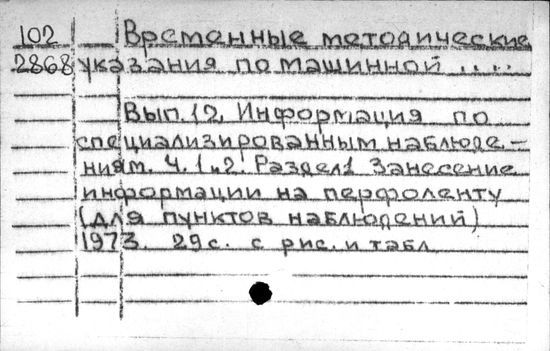 102 Временные методические
2868 указания по машинной ....
Вып. 12. Информация по
специализированным наблюде-
ниям. Ч. 1 и 2. Раздел 1 Занесение
информации на перфоленту
(для пунктов наблюдений)
1973. 29 с. с рис. и табл